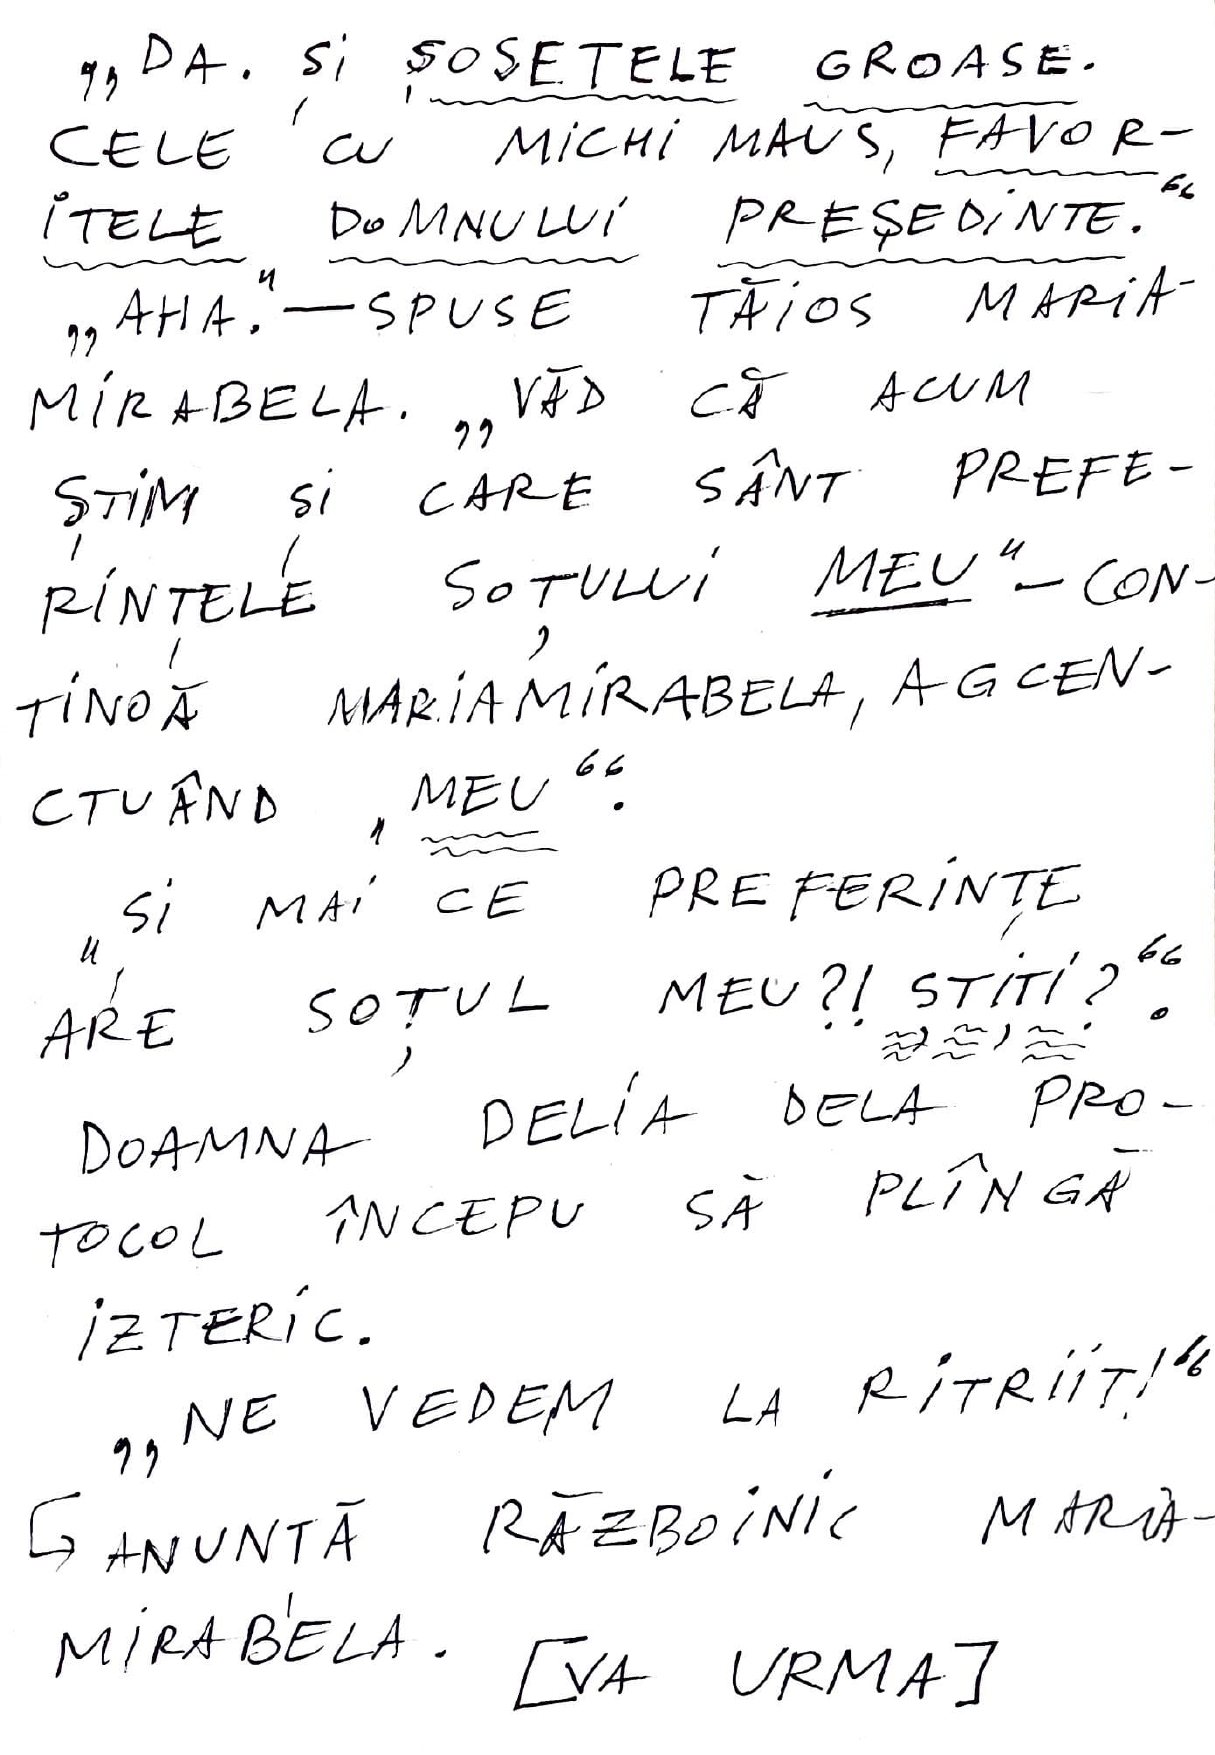 „DA. ȘI ȘOSETELE GROASE.
CELE CU MICHI MAUS, FAVOR-
ITELE DOMNULUI PREȘEDINTE.“
„AHA.“ — SPUSE TĂIOS MARIA-
MIRABELA. „VĂD CĂ ACUM
ȘTIM ȘI CARE SÂNT PREFE-
RINȚELE SOȚULUI MEU“ — CON-
TINOĂ MARIAMIRABELA, AGCEN-
CTUÂND „MEU“.
„ȘI MAI CE PREFERINȚE
ARE SOȚUL MEU?! STIȚI?“.
DOAMNA DELIA DELA PRO-
TOCOL ÎNCEPU SĂ PLÎNGĂ
IZTERIC.
„NE VEDEM LA RITRIIT!“
↳ ANUNȚĂ RĂZBOINIC MARIA-
MIRABELA. [VA URMA]